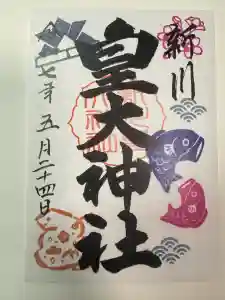 新川
皇大神社
七年五月二十四日